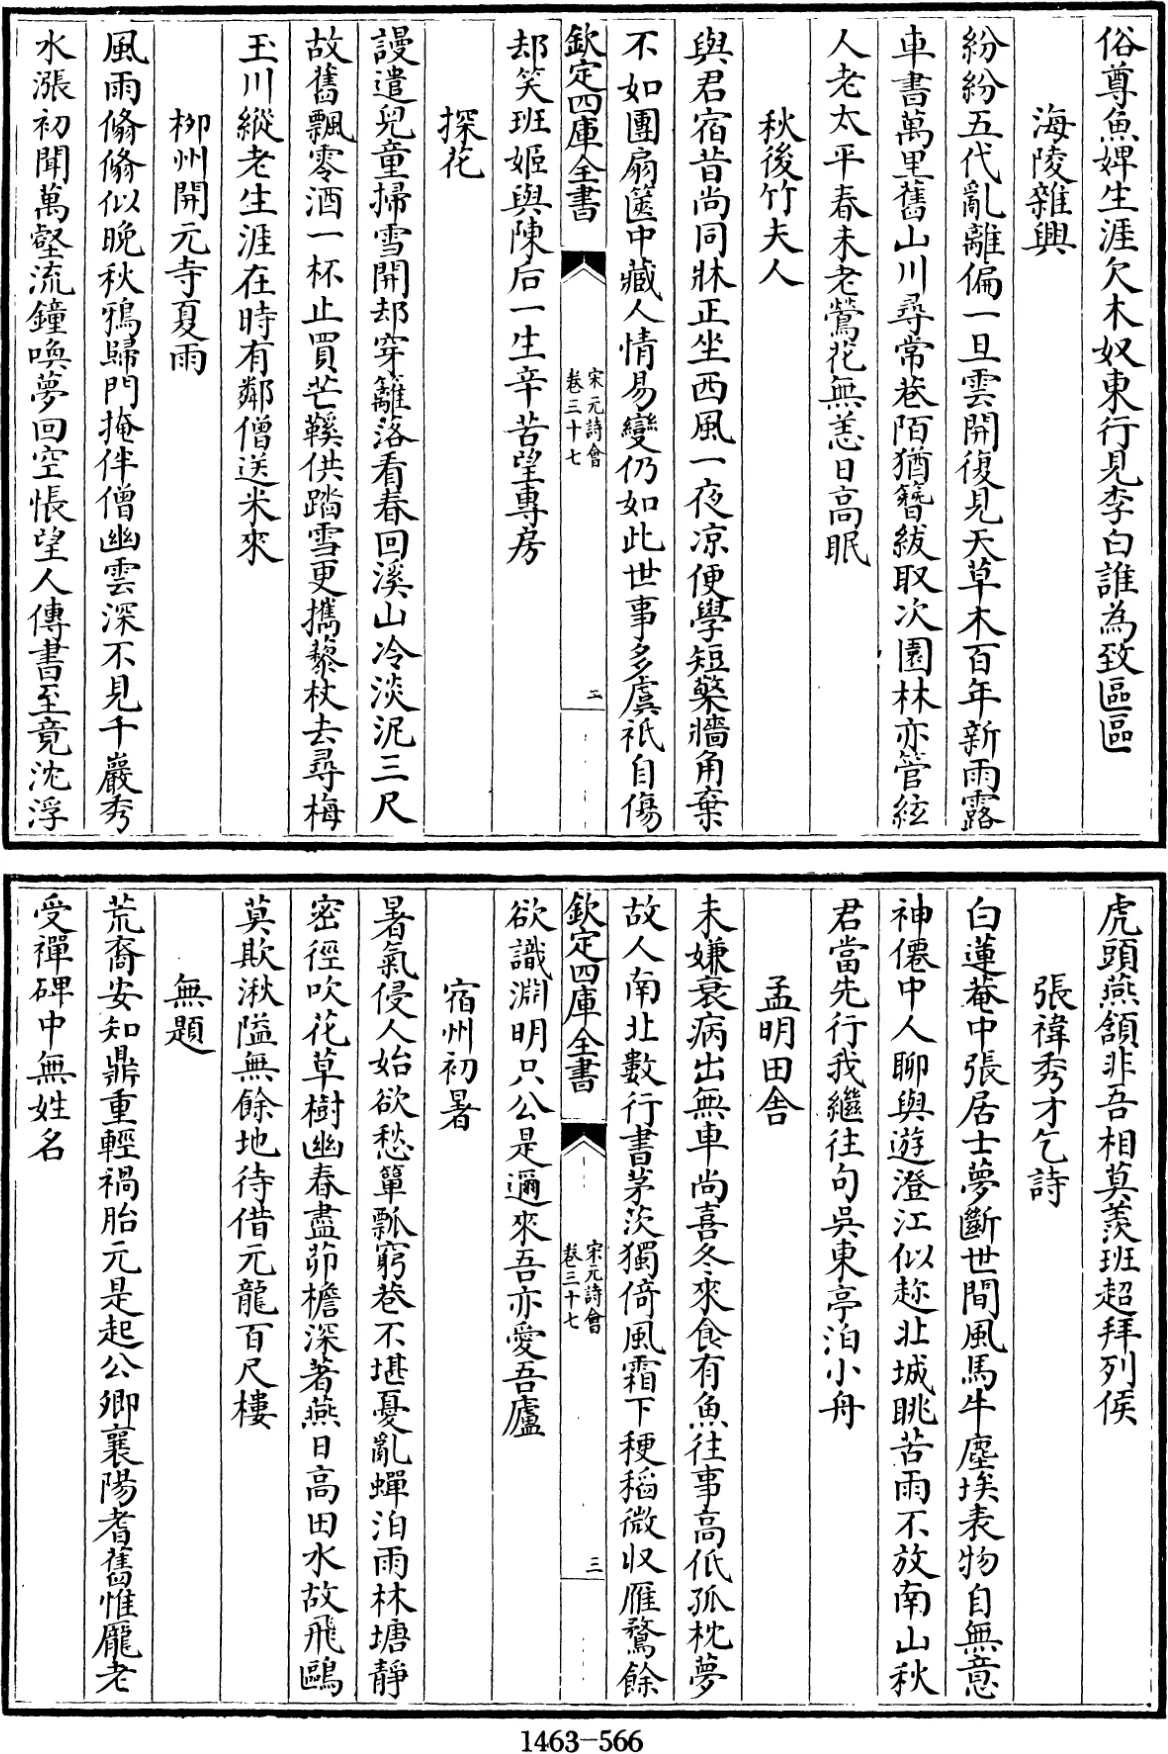 俗尊魚婢生涯欠木奴東行見李白誰為致區區
海陵雜興
紛紛五代亂離偏一旦雲開復見天草木百年新雨露
車書萬里舊山川尋常巷陌猶簪紱取次園林亦管絃
人老太平春未老鶯花無恙日高眠
秋後竹夫人
與君宿昔尚同牀正坐西風一夜凉便學短檠牆角棄
不如團扇篋中藏人情易變仍如此世事多虞祇自傷
欽定四庫全書
宋元詩會
卷三十七
二
却笑班姬與陳后一生辛苦望專房
探花
謾遣兒童掃雪開却穿籬落看春回溪山冷淡泥三尺
故舊飄零酒一杯止買芒鞵供踏雪更攜藜杖去尋梅
玉川縱老生涯在時有鄰僧送米來
柳州開元寺夏雨
風雨翛翛似晚秋鴉歸門掩伴僧幽雲深不見千巖秀
水漲初聞萬壑流鐘喚夢回空悵望人傳書至竟沈浮
虎頭燕頷非吾相莫羨班超拜列侯
張褘秀才乞詩
白蓮菴中張居士夢斷世間風馬牛塵埃表物自無意
神僊中人聊與遊澄江似趂北城眺苦雨不放南山秋
君當先行我繼往句吳東亭泊小舟
孟明田舍
未嫌衰病出無車尚喜冬來食有魚往事高低孤枕夢
故人南北數行書茅茨獨倚風霜下稉稻微收雁鶩餘
欽定四庫全書
宋元詩會
卷三十七
三
欲識淵明只公是邇來吾亦愛吾廬
宿州初暑
暑氣侵人始欲愁簞瓢窮巷不堪憂亂蟬泊雨林塘靜
密徑吹花草樹幽春盡茆檐深著燕日高田水故飛鷗
莫欺湫隘無餘地待借元龍百尺樓
無題
荒裔安知鼎重輕禍胎元是起公卿襄陽耆舊惟龐老
受禪碑中無姓名
1463-566